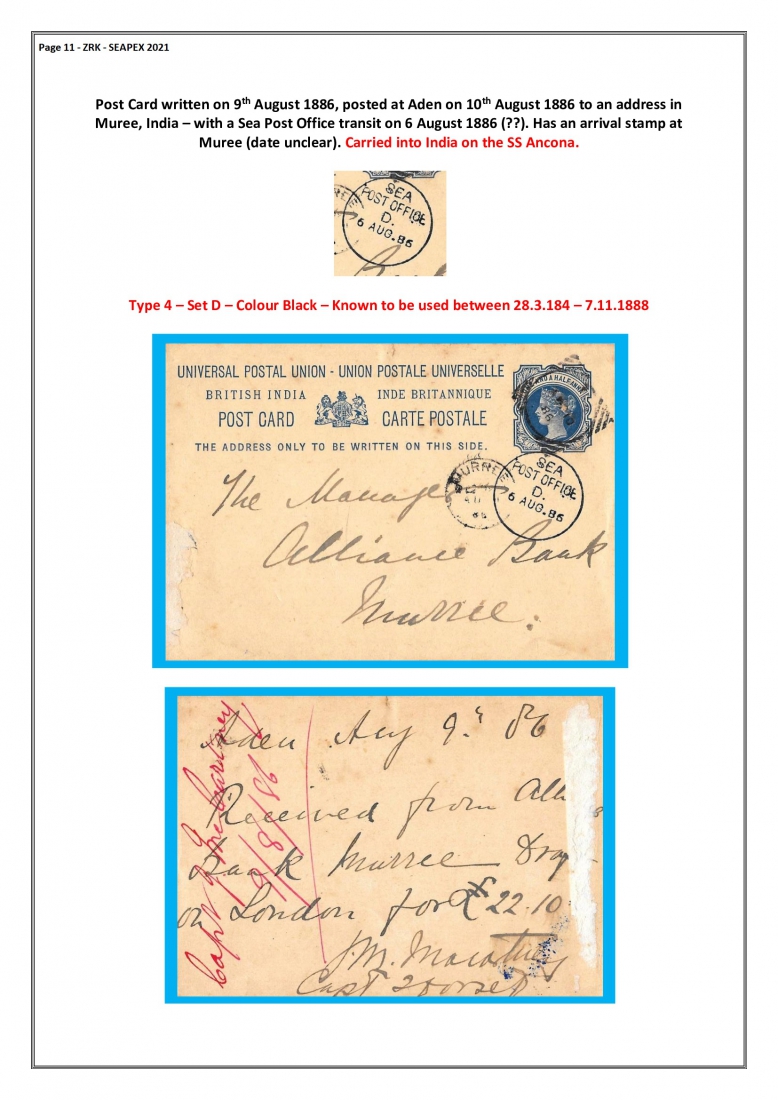 Page 11 - ZRK - SEAPEX 2021
Post Card written on 9th August 1886, posted at Aden on 10th August 1886 to an address in
Muree, India – with a Sea Post Office transit on 6 August 1886 (??). Has an arrival stamp at
Muree (date unclear). Carried into India on the SS Ancona.
SEA
POST OFFICE
D.
6 AUG.86
Type 4 – Set D – Colour Black – Known to be used between 28.3.184 – 7.11.1888
UNIVERSAL POSTAL UNION - UNION POSTALE UNIVERSELLE
BRITISH INDIA INDE BRITANNIQUE
POST CARD CARTE POSTALE
THE ADDRESS ONLY TO BE WRITTEN ON THIS SIDE.
MURREE
SEA
POST OFFICE
D.
6 AUG.86
The Manager
Alliance Bank
Murree.
Aden Aug 9. 86
Received from All
Bank Murree
on London for £ 22.10
Capt